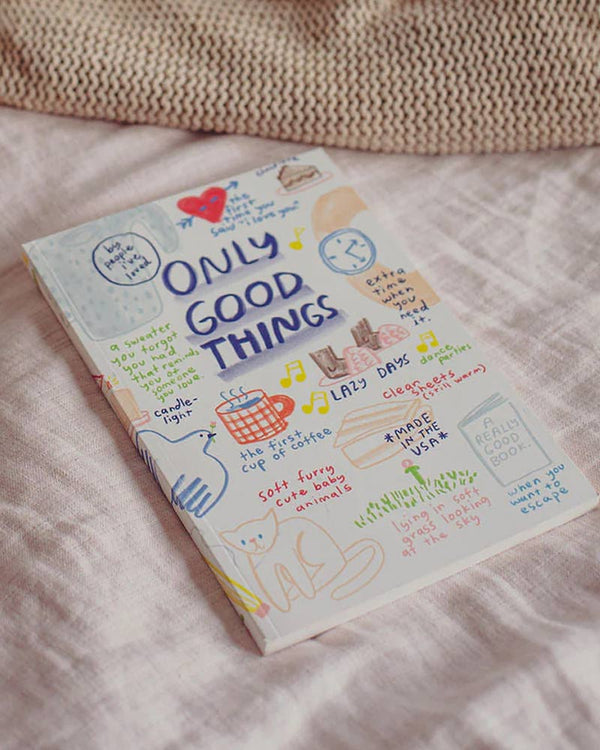 the
first
time you
saw "i love you"
by
people
i've
loved
ONLY
GOOD
THINGS
extra
time when
you
need
it.
a sweater
you forgot
you had
that reminds
you of
someone
you love.
candle-
light
LAZY DAYS
dance
parties
clean sheets
(still warm)
the first
cup of coffee
*MADE
IN THE
USA*
A
REALLY
GOOD
BOOK.
when you
want to
escape
soft furry
cute baby
animals
lying in soft
grass looking
at the sky